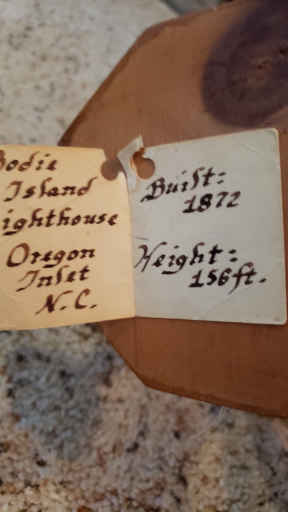 Bodie
Island
Lighthouse
Oregon
Inlet
N.C.
Built:
1872
Height:
156ft.